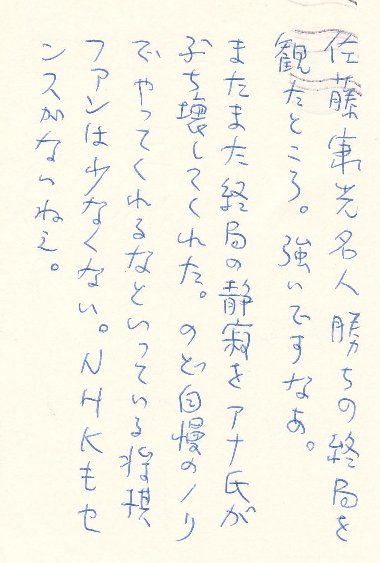 佐藤康光名人勝ちの終局を
観たところ。強いですなあ。
またまた終局の静寂をアナ氏が
ぶち壊してくれた。のど自慢のノリ
でやってくれるなといっている将棋
ファンは少なくない。NHKもセ
ンスがないねえ。